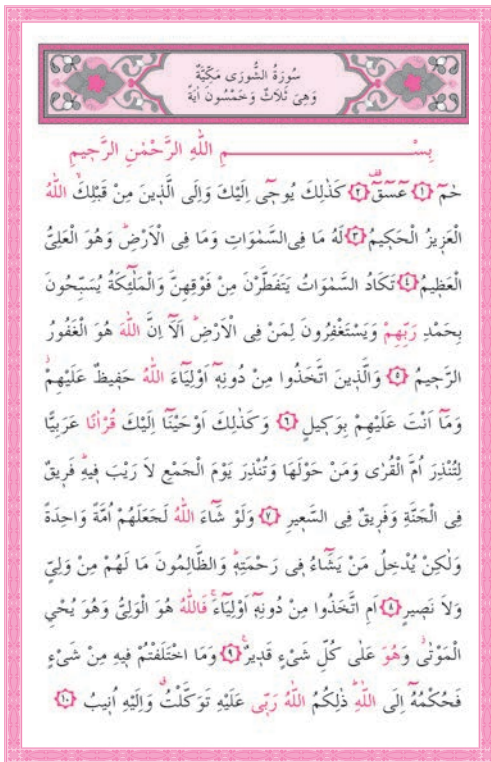 سُورَةُ الشُّورَى مَكِّيَّةٌ
وَهِيَ ثَلَاثٌ وَخَمْسُونَ اٰيَةً
بِسْــــــــــــمِ اللّٰهِ الرَّحْمٰنِ الرَّحٖيمِ
حٰمٓ ﴿١﴾ عٓسٓقٓ ﴿٢﴾ كَذٰلِكَ يُوحٖٓى اِلَيْكَ وَاِلَى الَّذٖينَ مِنْ قَبْلِكَۙ اللّٰهُ
الْعَزٖيزُ الْحَكٖيمُ ﴿٣﴾ لَهُ مَا فِى السَّمٰوَاتِ وَمَا فِى الْاَرْضِؕ وَهُوَ الْعَلِىُّ
الْعَظٖيمُ ﴿٤﴾ تَكَادُ السَّمٰوَاتُ يَتَفَطَّرْنَ مِنْ فَوْقِهِنَّ وَالْمَلٰٓئِكَةُ يُسَبِّحُونَ
بِحَمْدِ رَبِّهِمْ وَيَسْتَغْفِرُونَ لِمَنْ فِى الْاَرْضِؕ اَلَٓا اِنَّ اللّٰهَ هُوَ الْغَفُورُ
الرَّحٖيمُ ﴿٥﴾ وَالَّذٖينَ اتَّخَذُوا مِنْ دُونِهٖٓ اَوْلِيَٓاءَ اللّٰهُ حَفٖيظٌ عَلَيْهِمْۘ
وَمَٓا اَنْتَ عَلَيْهِمْ بِوَكٖيلٍ ﴿٦﴾ وَكَذٰلِكَ اَوْحَيْنَٓا اِلَيْكَ قُرْاٰنًا عَرَبِيًّا
لِتُنْذِرَ اُمَّ الْقُرٰى وَمَنْ حَوْلَهَا وَتُنْذِرَ يَوْمَ الْجَمْعِ لَا رَيْبَ فٖيهِؕ فَرٖيقٌ
فِى الْجَنَّةِ وَفَرٖيقٌ فِى السَّعٖيرِ ﴿٧﴾ وَلَوْ شَٓاءَ اللّٰهُ لَجَعَلَهُمْ اُمَّةً وَاحِدَةً
وَلٰكِنْ يُدْخِلُ مَنْ يَشَٓاءُ فٖى رَحْمَتِهٖؕ وَالظَّالِمُونَ مَا لَهُمْ مِنْ وَلِىٍّ
وَلَا نَصٖيرٍ ﴿٨﴾ اَمِ اتَّخَذُوا مِنْ دُونِهٖٓ اَوْلِيَٓاءَۚ فَاللّٰهُ هُوَ الْوَلِىُّ وَهُوَ يُحْيِ
الْمَوْتٰىؗ وَهُوَ عَلٰى كُلِّ شَىْءٍ قَدٖيرٌ ﴿٩﴾ وَمَا اخْتَلَفْتُمْ فٖيهِ مِنْ شَىْءٍ
فَحُكْمُهُٓ اِلَى اللّٰهِؕ ذٰلِكُمُ اللّٰهُ رَبّٖى عَلَيْهِ تَوَكَّلْتُۗ وَاِلَيْهِ اُنٖيبُ ﴿١٠﴾